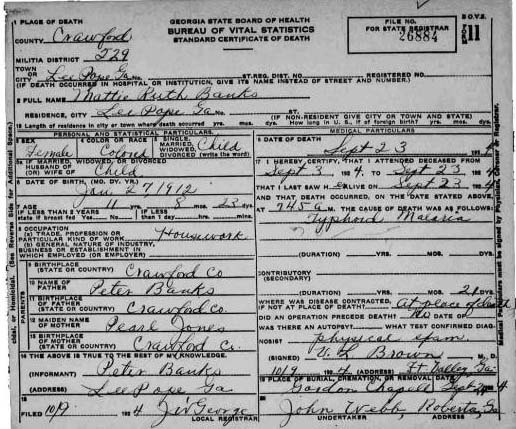 1 PLACE OF DEATH
COUNTY Crawford
MILITIA DISTRICT 529
TOWN OR CITY Lee Pope Ga ST. REG. DIST. NO. REGISTERED NO.
(IF DEATH OCCURRED IN HOSPITAL OR INSTITUTION, GIVE ITS NAME INSTEAD OF STREET AND NUMBER.)
GEORGIA STATE BOARD OF HEALTH
BUREAU OF VITAL STATISTICS
STANDARD CERTIFICATE OF DEATH
FILE NO.
FOR STATE REGISTRAR
26884
B.O.V.S.
FORM 11
2 FULL NAME Mattie Ruth Banks
RESIDENCE, CITY Lee Pope Ga ST. (IF NON-RESIDENT GIVE CITY OR TOWN AND STATE)
Length of residence in city or town where death occurred yrs. mos. ds. How long in U. S., if of foreign birth? yrs. mos. dys.
PERSONAL AND STATISTICAL PARTICULARS.
3 SEX Female
4 COLOR OR RACE Colored
5 SINGLE, MARRIED, WIDOWED OR DIVORCED (write the word) Child
5a IF MARRIED, WIDOWED, OR DIVORCED
HUSBAND OF (OR) WIFE OF Child
6 DATE OF BIRTH (MO. DY. YR.) Jan 27 1912
7 AGE 11 YRS. 8 MOS. 23 DYS.
IF LESS THAN 2 YEARS state if breast fed Yes No
If LESS than 1 day hrs. mins.
8 OCCUPATION
(a) TRADE, PROFESSION OR PARTICULAR KIND OF WORK Housework
(b) GENERAL NATURE OF INDUSTRY, BUSINESS OR ESTABLISHMENT IN WHICH EMPLOYED (OR EMPLOYER)
9 BIRTHPLACE (STATE OR COUNTRY) Crawford Co
PARENTS
10 NAME OF FATHER Peter Banks
11 BIRTHPLACE OF FATHER (STATE OR COUNTRY) Crawford Co
12 MAIDEN NAME OF MOTHER Pearl Jones
13 BIRTHPLACE OF MOTHER (STATE OR COUNTRY) Crawford Co.
14 THE ABOVE IS TRUE TO THE BEST OF MY KNOWLEDGE.
(INFORMANT) Peter Banks
(ADDRESS) Lee Pope Ga
15 FILED 10/9 1924 LOCAL REGISTRAR
MEDICAL PARTICULARS
16 DATE OF DEATH Sept 23 192
17 I HEREBY CERTIFY, THAT I ATTENDED DECEASED FROM
Sept 3 1924, TO Sept 23 1924
THAT I LAST SAW H ALIVE ON Sept 23 1924
AND THAT DEATH OCCURRED, ON THE DATE STATED ABOVE
AT 745 a M. THE CAUSE OF DEATH WAS AS FOLLOWS:
Typhoid Malaria
(DURATION) YRS. MOS. DYS.
CONTRIBUTORY (SECONDARY)
(DURATION) YRS. MOS. 21 DYS.
WHERE WAS DISEASE CONTRACTED, IF NOT AT PLACE OF DEATH? At place of death
DID AN OPERATION PRECEDE DEATH? No DATE OF
WAS THERE AN AUTOPSY. WHAT TEST CONFIRMED DIAG-
NOSIS? physical exam
(SIGNED) Brown M. D.
10/9 1924 (ADDRESS) Ft. Valley Ga
19 PLACE OF BURIAL, CREMATION, OR REMOVAL DATE
Gordon Chapel
20 John Webb Roberta, Ga
UNDERTAKER ADDRESS